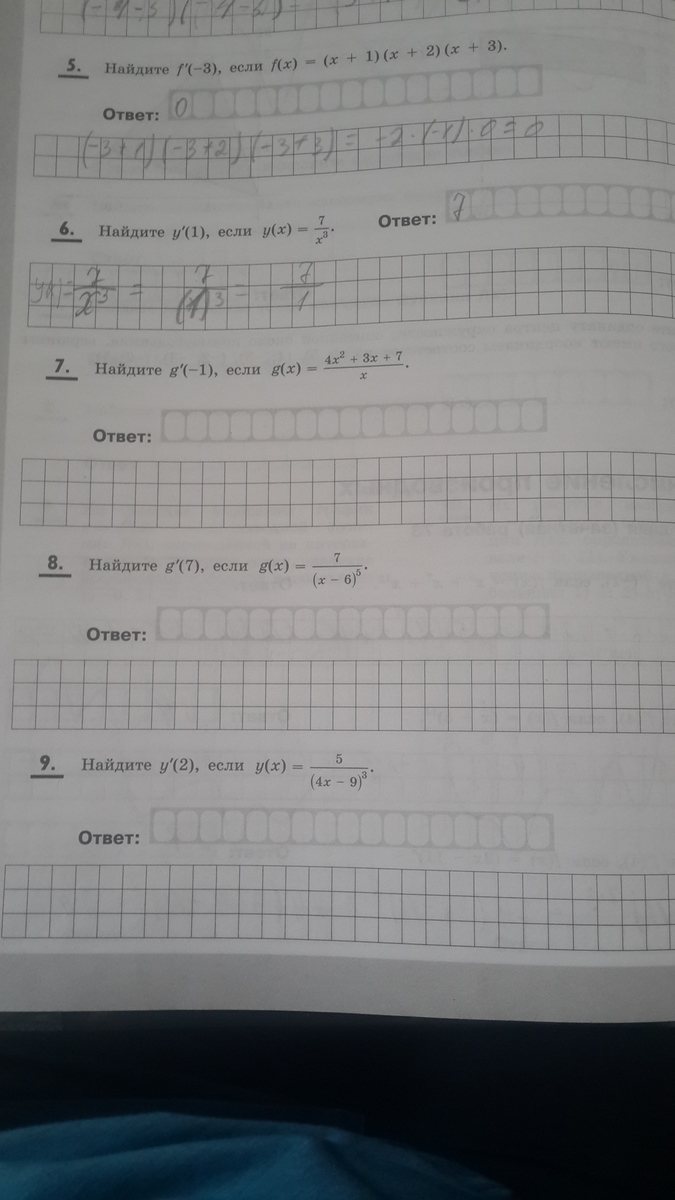 5. Найдите f′(−3), если f(x) = (x + 1)(x + 2)(x + 3).
Ответ: 0
(−3+1)(−3+2)(−3+3) = −2·(−1)·0=0
6. Найдите y′(1), если y(x) = 7/x³. Ответ: 7
y(x)= 7/x³ = 7/(1)³ = 7/1
7. Найдите g′(−1), если g(x) = (4x² + 3x + 7)/x.
Ответ:
8. Найдите g′(7), если g(x) = 7/(x − 6)⁵.
Ответ:
9. Найдите y′(2), если y(x) = 5/(4x − 9)³.
Ответ: